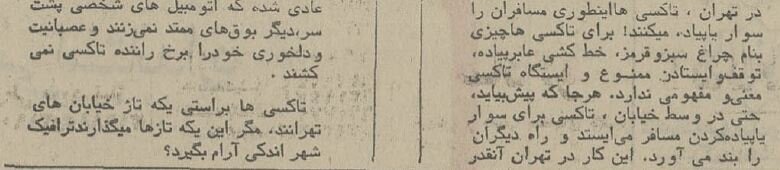 در تهران ، تاکسی هااینطوری مسافران را
سوار یاپیاد، میکنند! برای تاکسی هاچیزی
بنام چراغ سبزوقرمز، خط کشی عابرپیاده،
توقفوایستادن ممنوع و ایستگاه تاکسی
معنی‌و مفهومی ندارد. هرجا که پیش‌بیاید،
حتی در وسط خیابان ، تاکسی برای سوار
یاپیاده‌کردن مسافر می‌ایستد و راه دیگران
را بند می آورد. این کار در تهران آنقدر
عادی شده که اتومبیل های شخصی پشت
سر،دیگر بوق‌های ممتد نمی‌زنند و عصبانیت
و دلخوری خودرا برخ راننده تاکسی نمی
کشند .
تاکسی ها براستی یکه تاز خیابان های
تهرانند، مگر این یکه تازها میگذارندترافیک
شهر اندکی آرام بگیرد؟